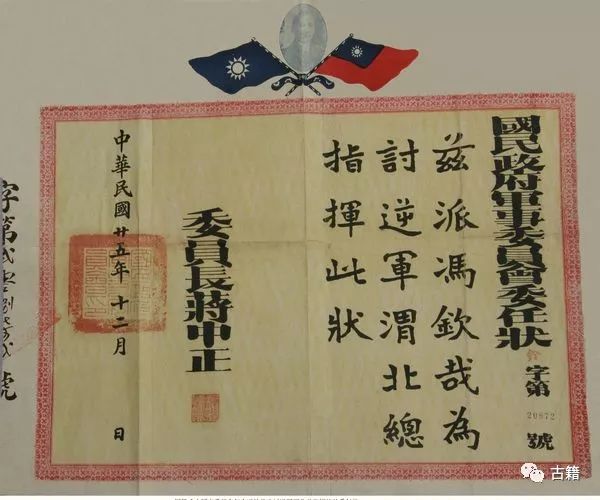 國民政府軍事委員會委任狀
字第 20872 號
茲派馮欽哉為
討逆軍渭北總
指揮此狀
委員長蔣中正
中華民國廿五年十二月 日
字第 號
古籍